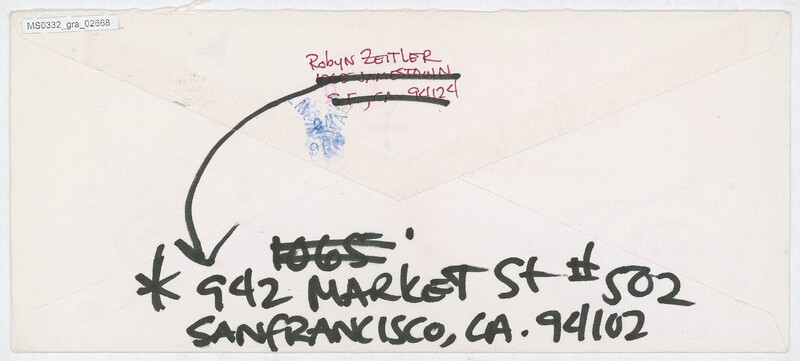 MS0332_gra_02668
Robyn ZEITLER
1065 JAMESTOWN
S.F., CA 94124
1065
* 942 MARKET St #502
SANFRANCISCO, CA. 94102